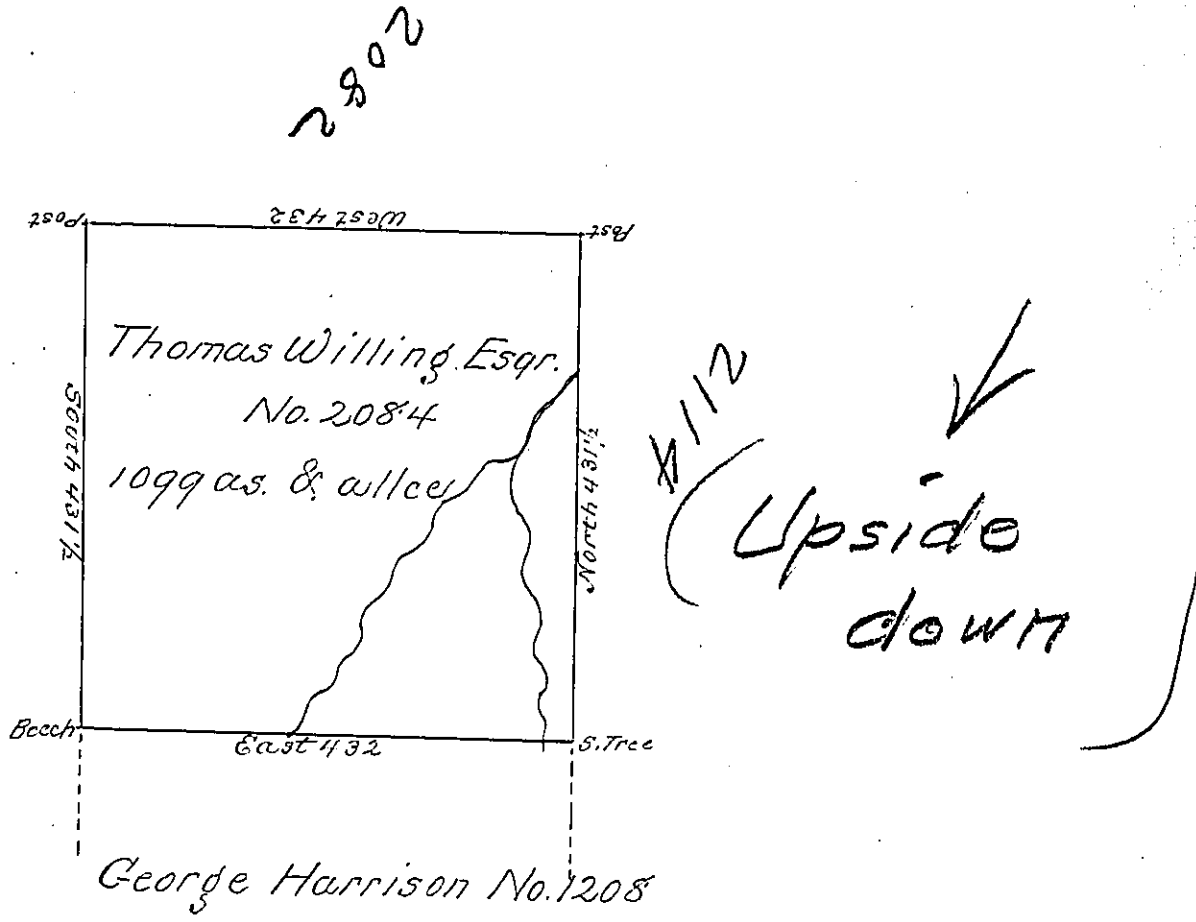 2802
Post West 432 Post
Thomas Willing Esqr.
No. 2084
1099 as. & allce
South 431 1/2
North 431 1/2
(Upside
down)
Beech East 432 S. Tree
George Harrison No. 1208